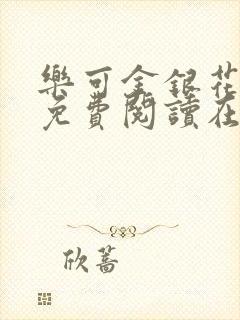 樂可金銀花
免費閱讀在
欣蔷